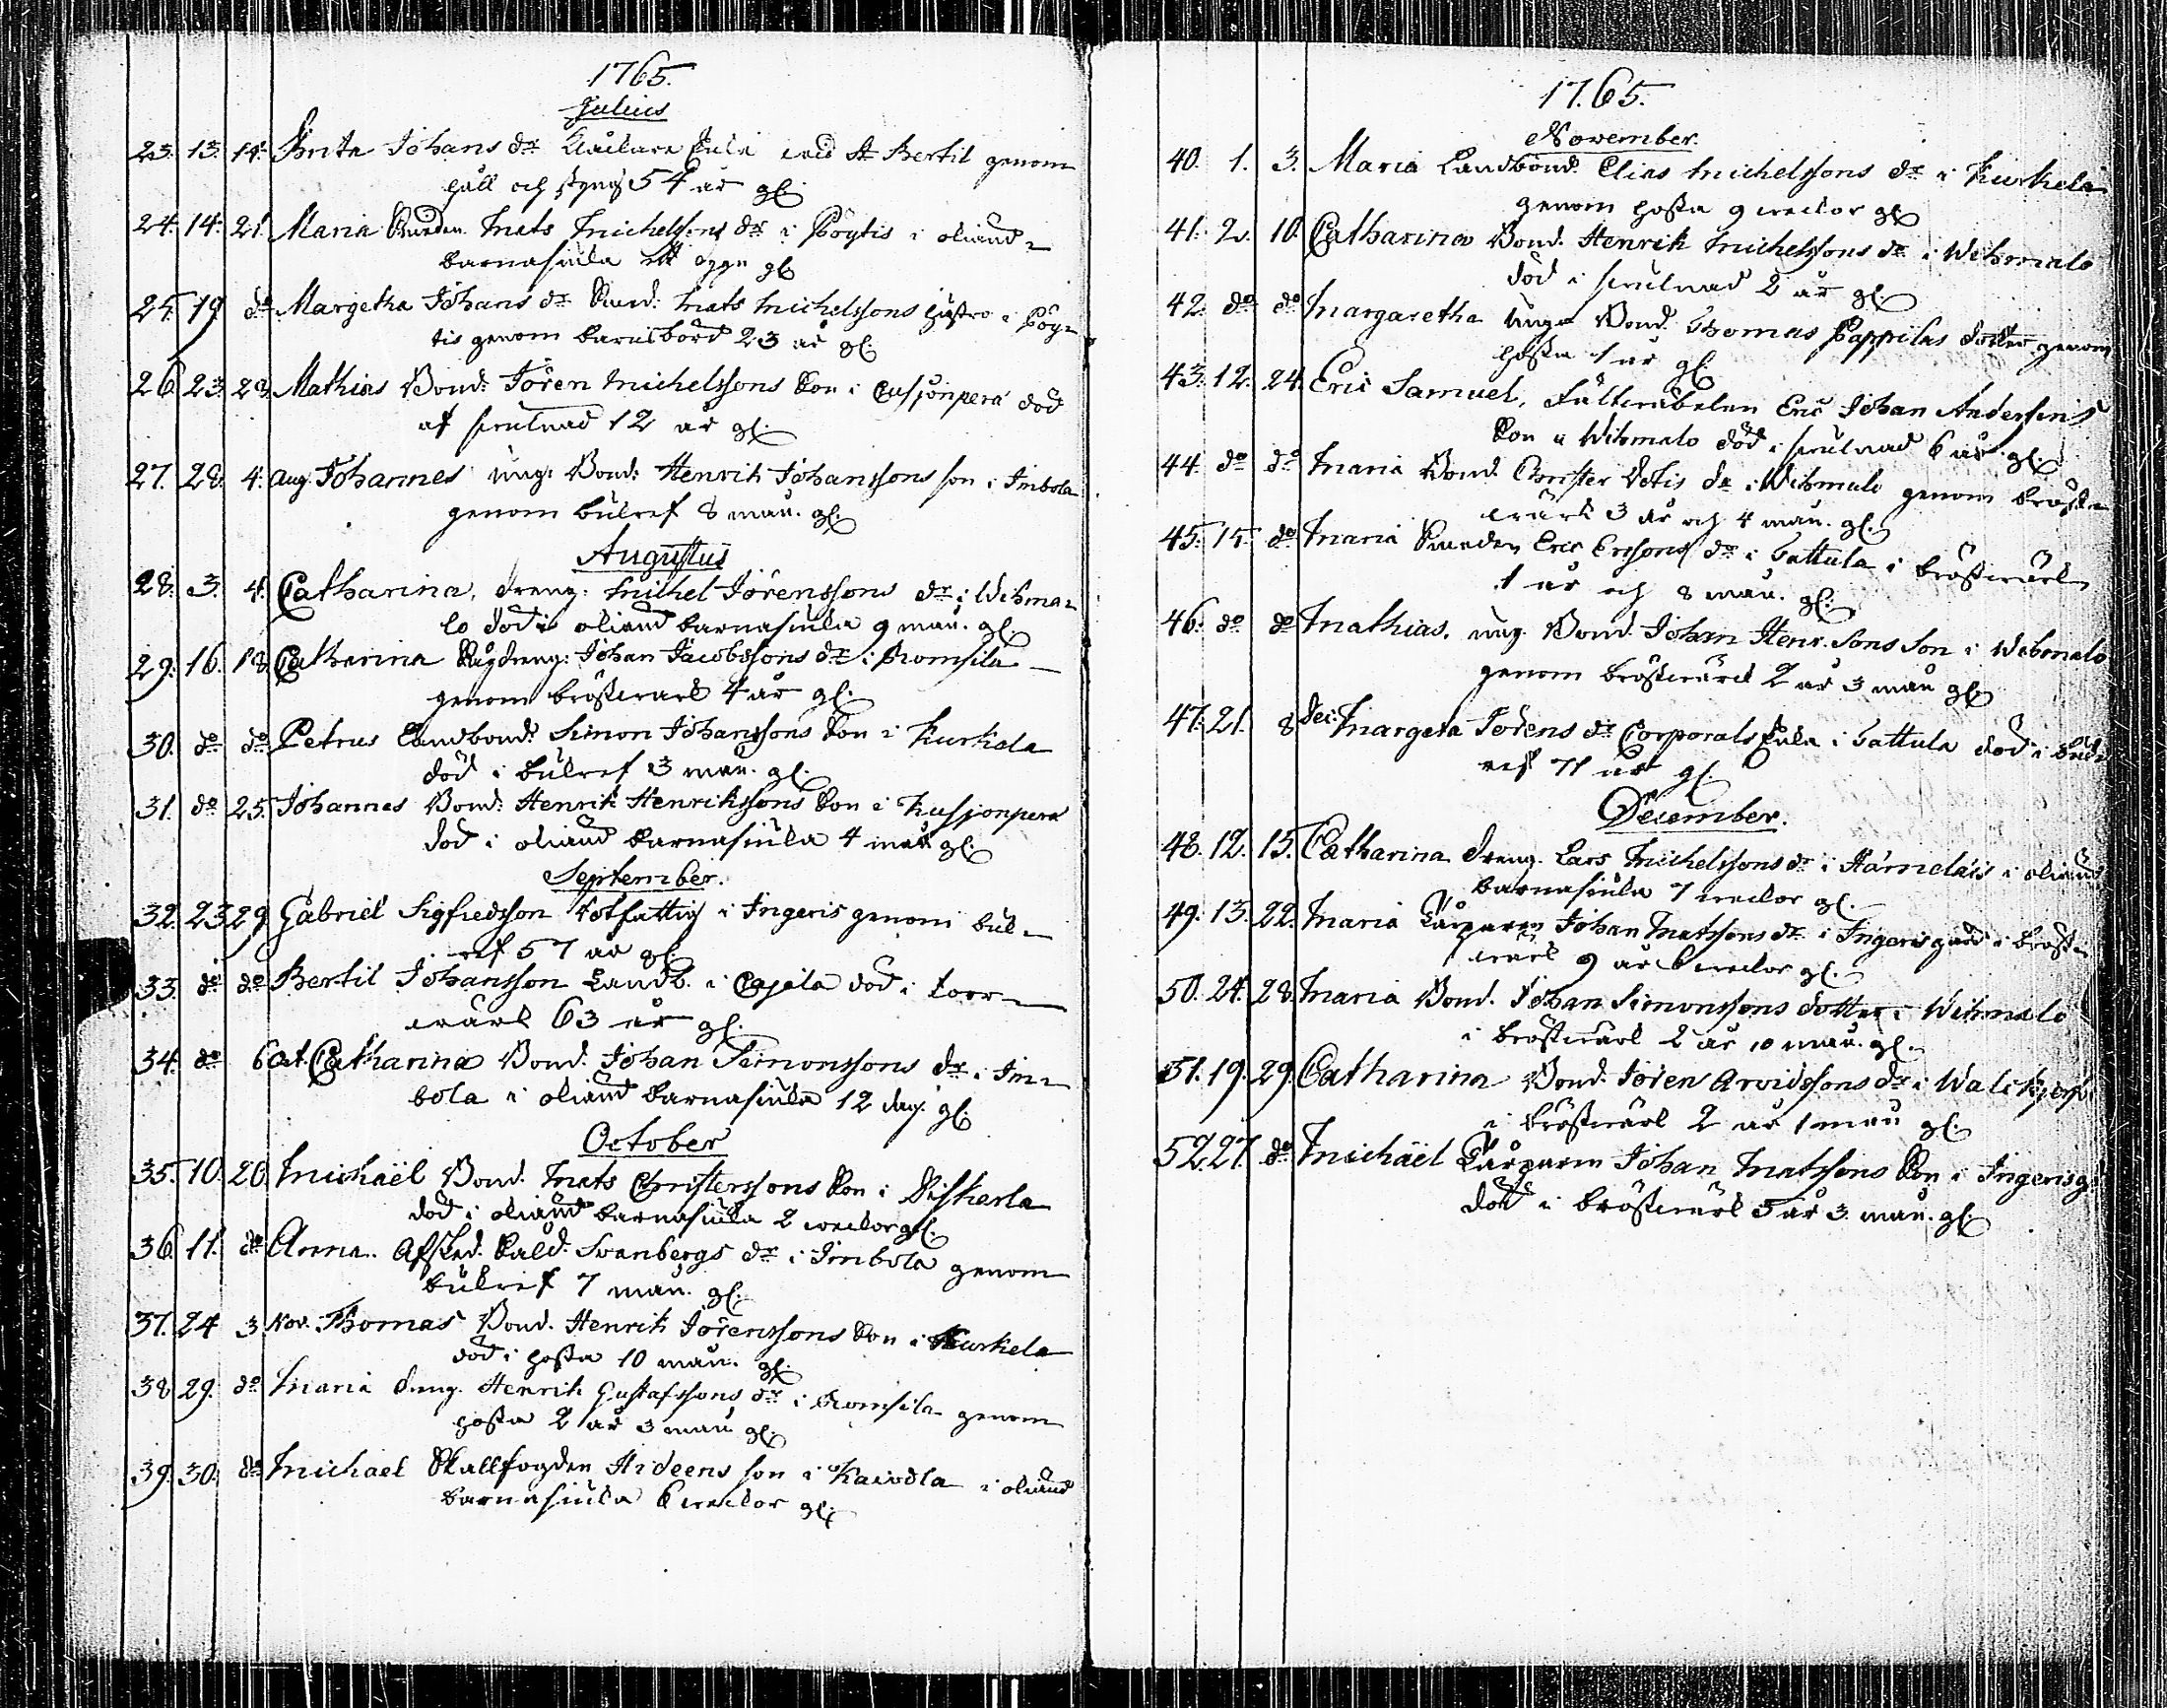 1765.
Julius
23. 13. 14. Brita Johans dr Enka wid St Bertil genom
håll och styng 54 år gl.
24. 14. 21. Maria Smeden Mats Michelssons dr i Pöytis i okiänd
barnasiuka gl.
25. 19 do Margetha Johans dr Smed. Mats Michelssons hustro i Pöy-
tis genom barnsbörd 23 år gl.
26. 23. 28. Mathias Bond. Jören Michelssons Son i Cusjonperä död
af 12 år gl.
27. 28. 4. Aug. Johannes ung. Bond. Henrich Johanssons son i Imbola
genom bulref 8 mån. gl.
Augustus
28. 3. 4. Catharina, dreng. Michel Jörenssons dr i Wihma-
lo död i okiand barnasiuka 9 mån. gl.
29. 16. 18 Catharina Johan Jacobssons dr i Romsila
genom bröstwärk 4 år gl.
30. do do Petrus Landbond. Simon Johanssons Son i Kurkela
död i bulref 3 mån. gl.
31. do 25. Johannes Bond. Henrik Henrikssons Son i Kusjonpera
död i okiand barnasiuka 4 mån gl.
September.
32. 23 29 Gabriel Sigfredsson Rotfattig i Ingeris genom bul-
ref 57 år gl.
33. do do Bertil Johansson Landb. i Cajala död i torr-
wärk 63 år gl.
34. do 6 Oct. Catharina Bond. Johan Simonssons dr i Im-
bola i okiand barnasiuka 12 dag. gl.
October
35. 10. 20 Michaël Bond. Mats Christerssons Son i Viskerla
död i okiand barnasiuka 2 weckor gl.
36. 11. do Anna. Afsked. Sald. Svanbergs dr i Imbola genom
bulref 7 mån. gl.
37. 24 3 Nov. Thomas Bond. Henrik Jörenssons Son i Kurkela
död i hosta 10 mån. gl.
38 29. do Maria dreng. Henrik Gustafssons dr i Romsila genom
hosta 2 år 3 mån gl.
39. 30. do Michael Skallfogden Hideens son i Kaivola i okiänd
barnasiuka 6 weckor gl.
1765.
November.
40. 1. 3. Maria Landbond. Elias Michelssons dr i Kurkela
genom hosta 9 weckor gl.
41. 2. 10. Catharina Bond. Henrik Michelssons dr i Wihmalo
död i 2 år gl.
42. do do Margaretha unga Bond. Thomas Pappilas dotter genom
hosta 1 år gl.
43. 12. 24. Eric Samuel, Fältwäbelen Eric Johan Anderssens
Son i Wihmalo död i 6 år gl.
44. do do Maria Bond. Christer dr i Wihmalo genom bröst-
wärk 3 år och 4 mån. gl.
45. 15. do Maria Smeden Eric Ersons dr i Tattula i bröstwärk
1 år och 8 mån. gl.
46. do do Mathias. ung. Bond. Johan Henr.sons Son i Wihmalo
genom bröstwärk 2 år 3 mån gl.
47. 21. 8 Dec. Margeta Jörens dr Corporals Enka i Tattula död i bul-
ref 71 år gl.
December.
48. 12. 15. Catharina dreng. Lars Michelssons dr i Härmeläis i okiänd
barnasiuka 7 weckor gl.
49. 13. 22. Maria Johan Matssons dr i Ingerisgård i bröst-
wärk 9 år 6 weckor gl.
50. 24. 28. Maria Bond. Johan Simonssons dotter i Wihmalo
i bröstwärk 2 år 10 mån. gl.
51. 19. 29. Catharina Bond. Jören Arvidssons dr i
i bröstwärk 2 år 1 mån gl.
52. 27. do Michäel Johan Matssons Son i Ingerisg.
död i bröstwärk 5 år 3 mån. gl.